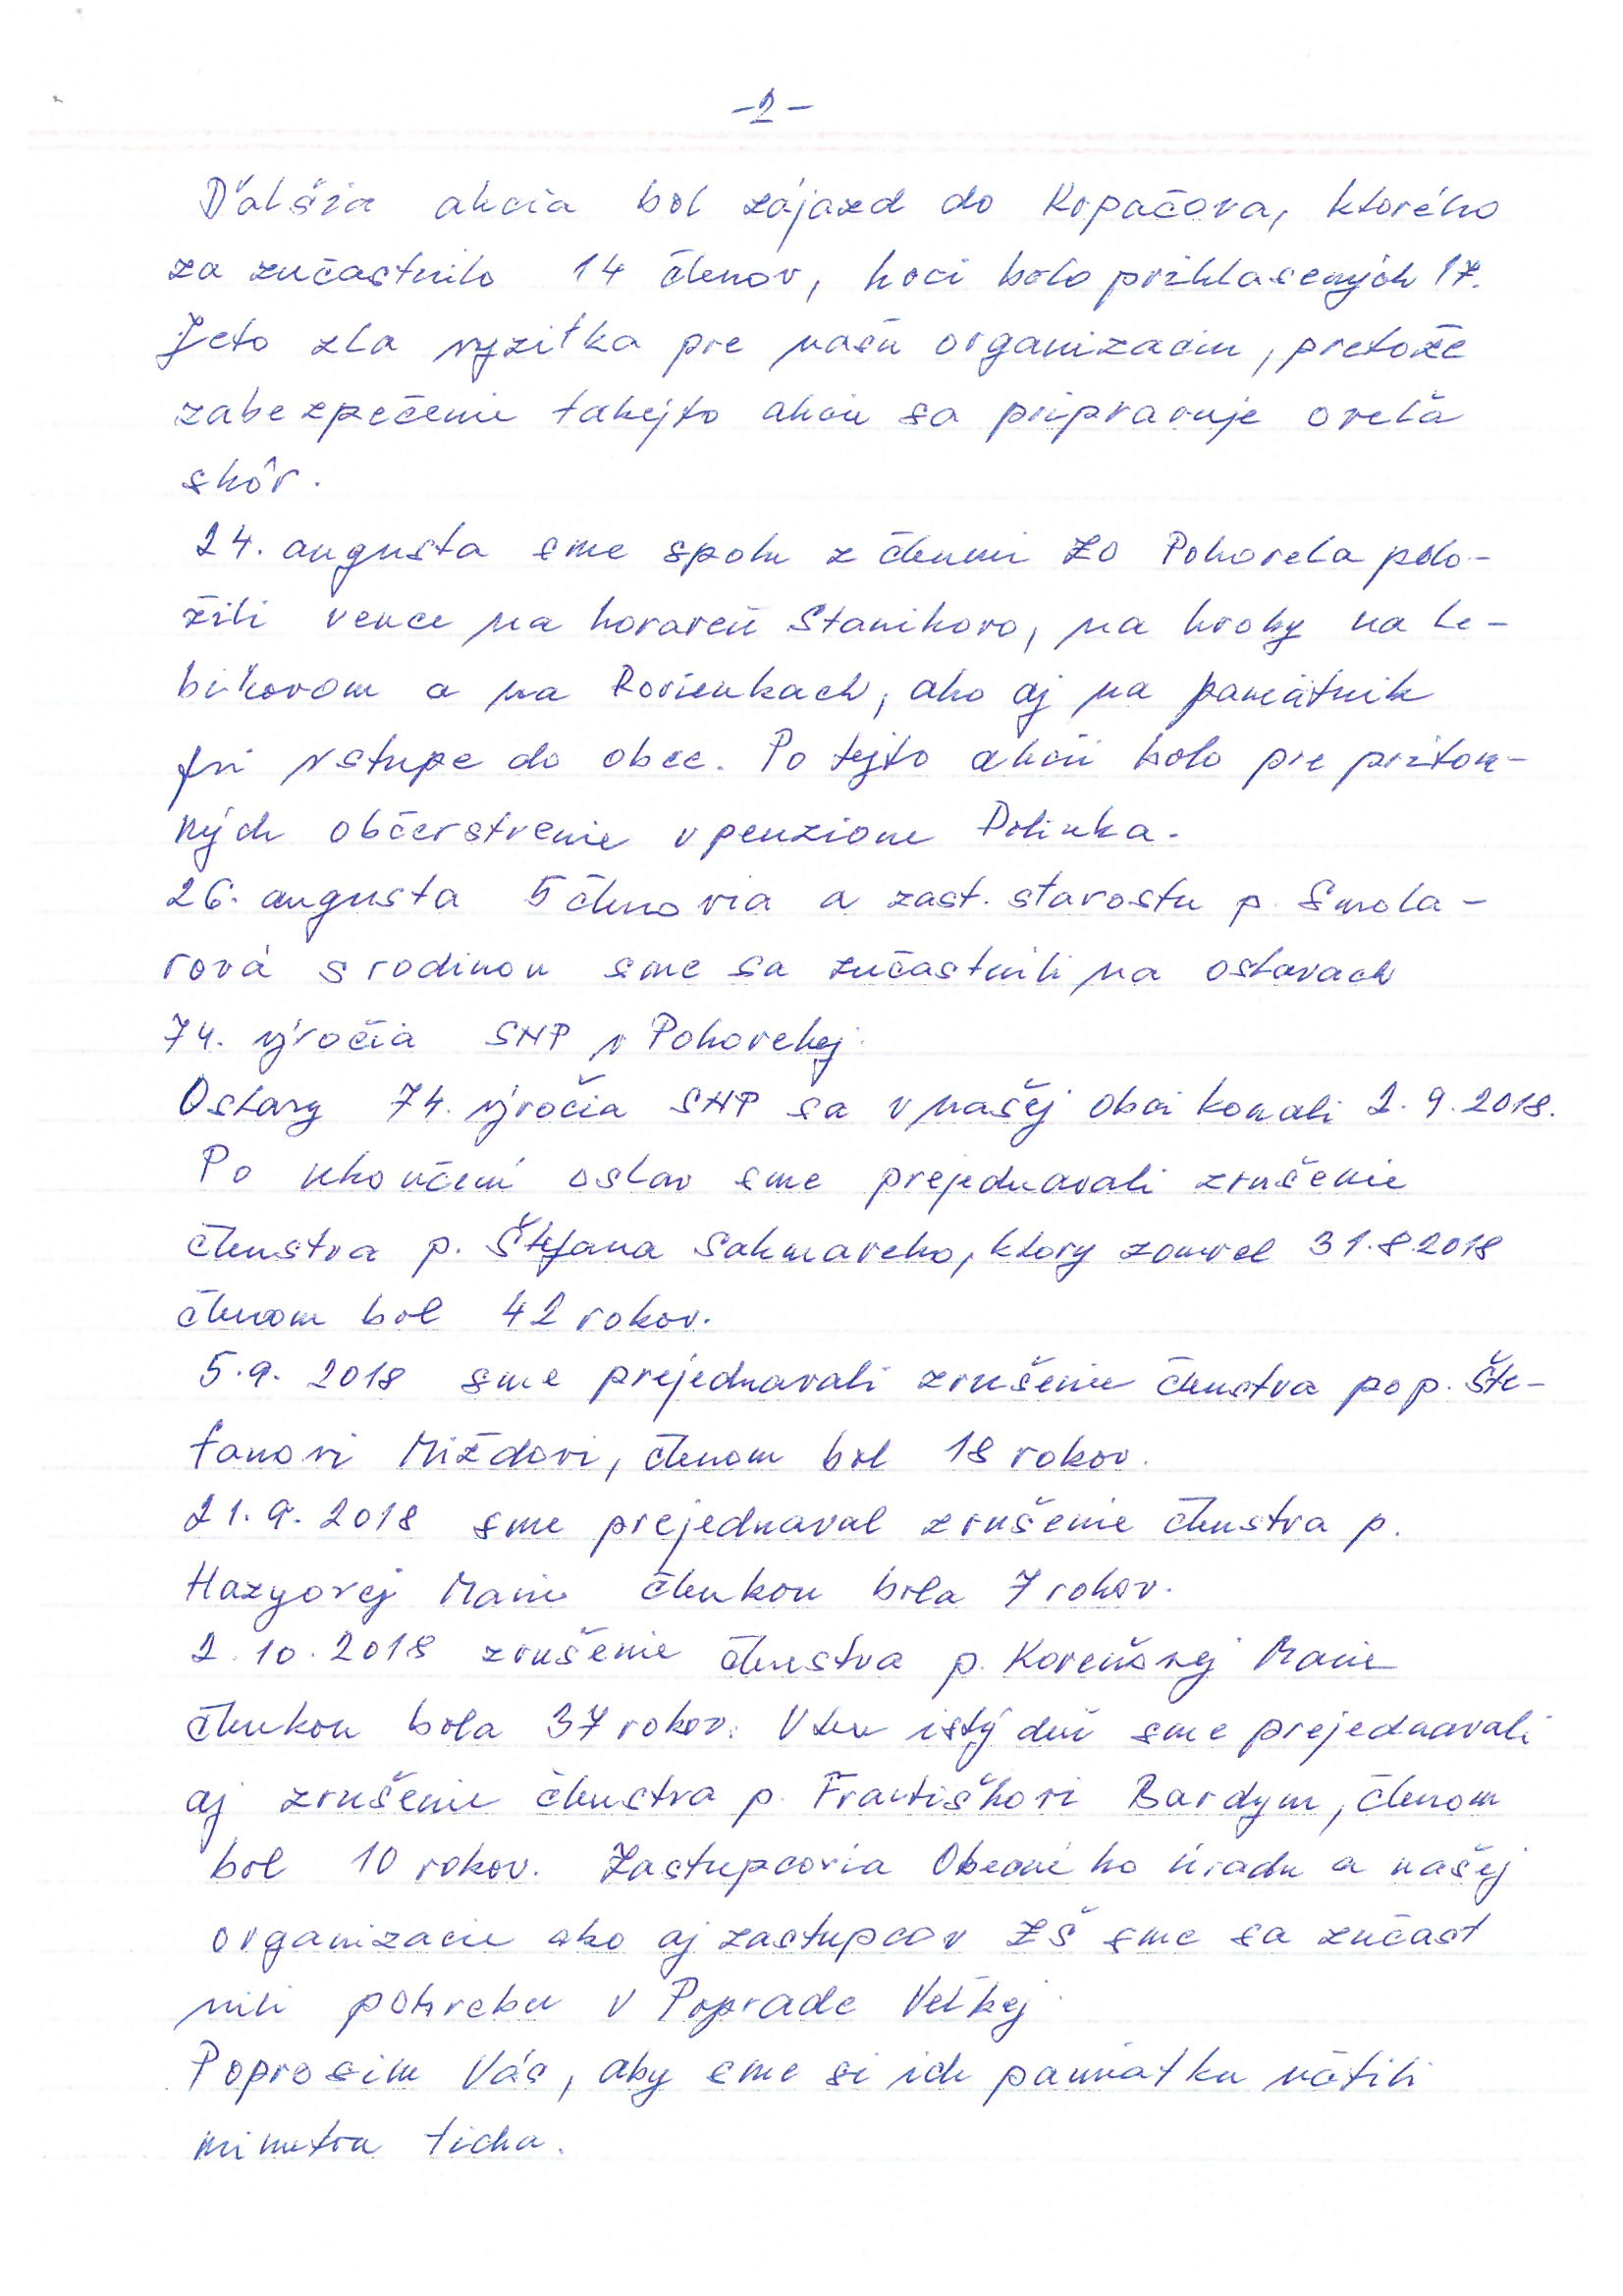 -2-
Ďalšia akcia bol zájazd do Kopačova, ktorého
za zučastnilo 14 členov, hoci bolo prihlasených 17.
Jeto zla vyzitka pre našu organizaciu, pretože
zabezpečenie takejto akcie sa pripravuje oveľa
skôr.
24. augusta sme spolu z členmi ZO Pohorela polo-
žili vence na horareň Stanikovo, na hroby na Le-
bikovom a na Rovienkach, ako aj na pamätnik
pri vstupe do obce. Po tejto akcii bolo pre pritom-
ných občerstvenie v penzione Dolinka.
26. augusta 5 členovia a zast. starostu p. Smola-
rová s rodinou sme sa zučastnili na oslavach
74. výročia SNP v Pohorelej.
Oslavy 74. výročia SNP sa v našej obci konali 2. 9. 2018.
Po ukončení oslav sme prejednavali zrušenie
členstva p. Štefana Sakmareho, ktory zomrel 31.8.2018
členom bol 42 rokov.
5.9. 2018 sme prejednavali zrušenie členstva po p. Šte-
fanovi Miždovi, členom bol 18 rokov.
21.9. 2018 sme prejednaval zrušenie členstva p.
Hazyovej Marie členkou bola 7 rokov.
2.10.2018 zrušenie členstva p. Marie
členkou bola 37 rokov. V ten istý deň sme prejednavali
aj zrušenie členstva p. Františkovi Bardym, členom
bol 10 rokov. Zastupcovia Obecného úradu a našej
organizacie ako aj zastupcov ZŠ sme sa zučast
nili pohrebu v Poprade Veľkej.
Poprosim Vás, aby sme si ich pamiatku uctili
minutou ticha.